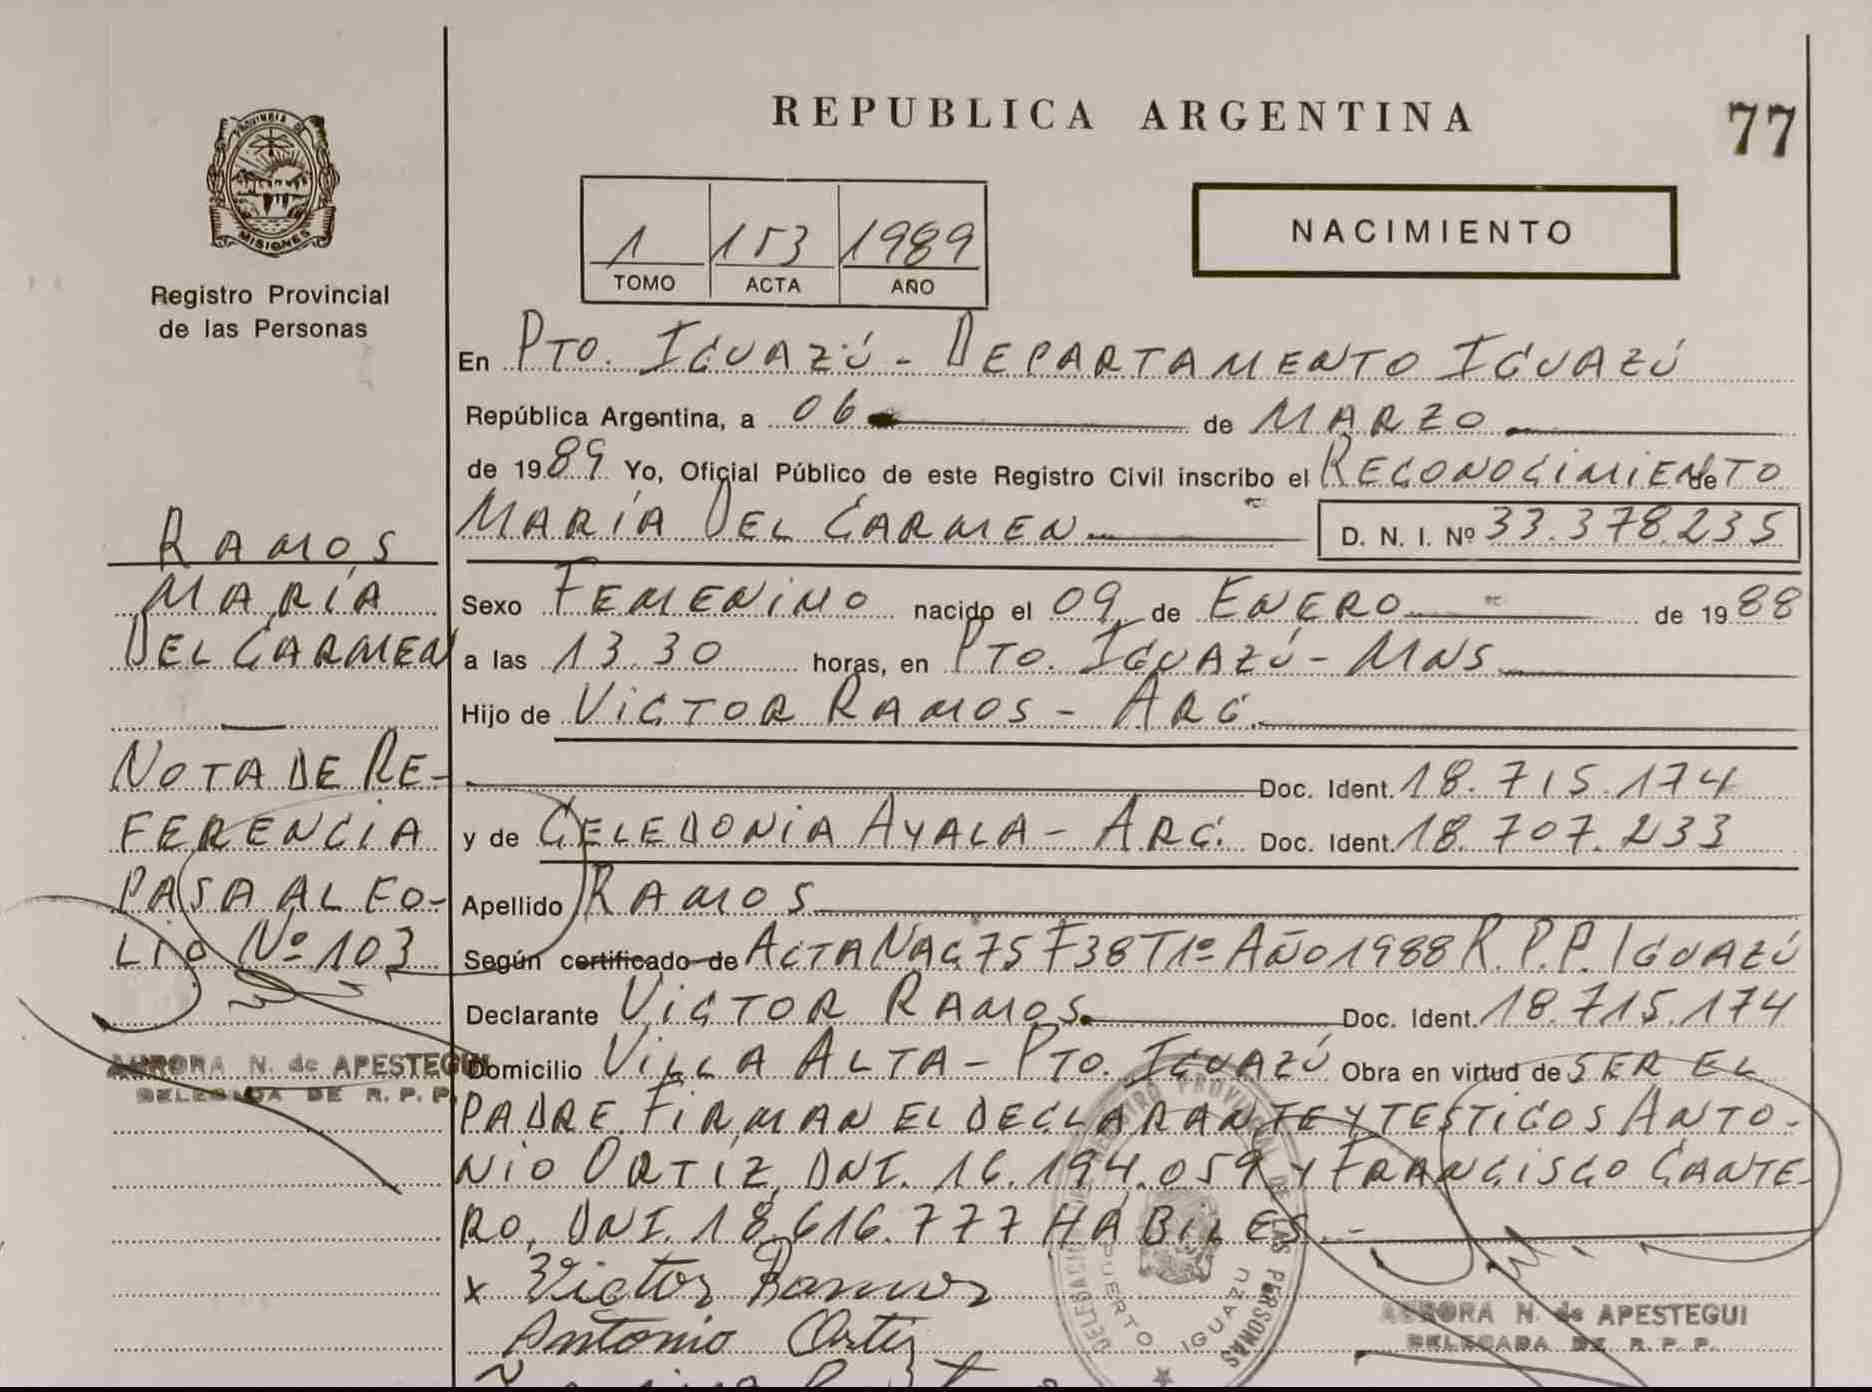 REPUBLICA ARGENTINA
77
PROVINCIA DE
MISIONES
Registro Provincial
de las Personas
1 153 1989
TOMO ACTA AÑO
NACIMIENTO
En PTO. IGUAZÚ - DEPARTAMENTO IGUAZÚ
República Argentina, a 06 de MARZO
de 1989 Yo, Oficial Público de este Registro Civil inscribo el RECONOCIMIENTO de
MARÍA DEL CARMEN D. N. I. Nº 33.378.235
Sexo FEMENINO nacido el 09 de ENERO de 1988
a las 13.30 horas, en PTO. IGUAZÚ - MNS
Hijo de VICTOR RAMOS - ARG.
Doc. Ident. 18.715.174
y de CELEDONIA AYALA - ARG. Doc. Ident. 18.707.233
Apellido RAMOS
Según certificado de ACTA NAC. 75 F38 T1º AÑO 1988 R.P.P. IGUAZÚ
Declarante VICTOR RAMOS Doc. Ident. 18.715.174
Domicilio VILLA ALTA - PTO. IGUAZÚ Obra en virtud de SER EL
PADRE. FIRMAN EL DECLARANTE Y TESTIGOS ANTO-
NIO ORTÍZ, DNI. 16.194.059 Y FRANCISCO CANTE-
RO, DNI. 18.616.777 HÁBILES. -
x Victor Ramos
Antonio Ortiz
RAMOS
MARÍA
DEL CARMEN
NOTA DE RE-
FERENCIA
PASA AL FO-
LIO Nº 103
AURORA N. de APESTEGUI
DELEGADA DE R. P. P.
REGISTRO PROVINCIAL DE LAS PERSONAS
PUERTO IGUAZU
AURORA N. de APESTEGUI
DELEGADA DE R. P. P.